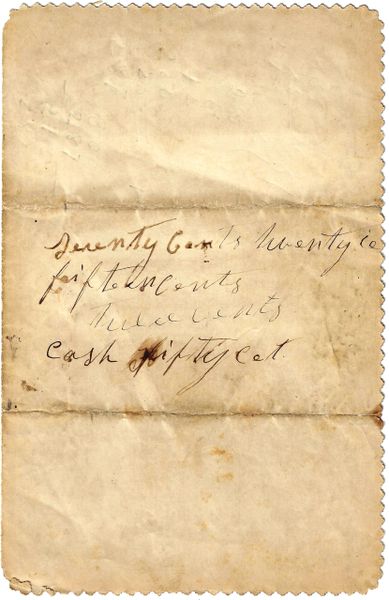 Seventy Cents twenty ce
fifteen cents
cents
cash fifty cet.